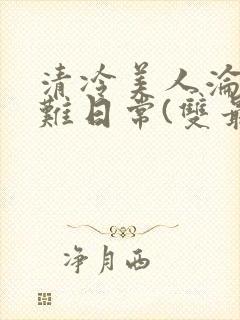 清冷美人淪
難日常(雙
净月西